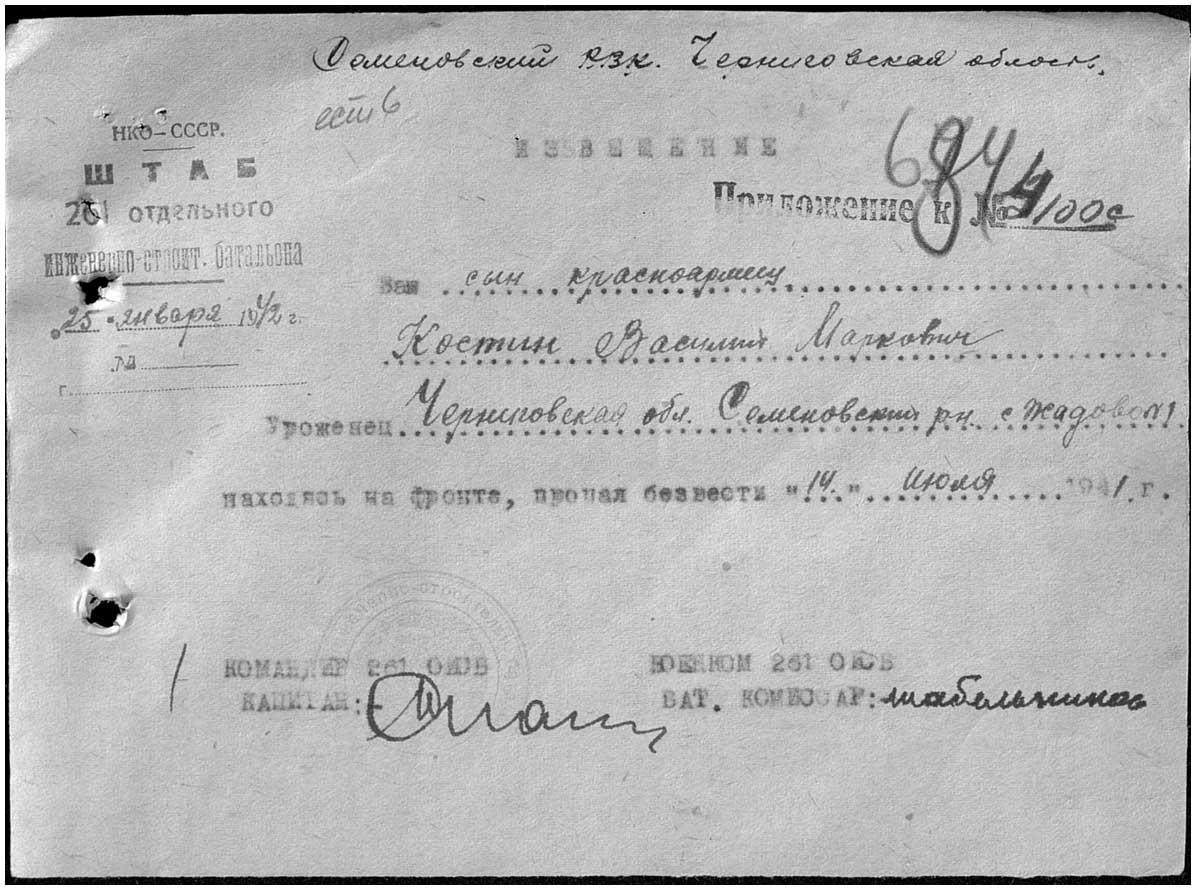 Семеновский РВК. Черниговская область.
есть
НКО–СССР.
ШТАБ
261 отдельного
инженерно-строит. батальона
"25" января 1942 г.
№
г.
ИЗВЕЩЕНИЕ
Приложение к № 4100с
Ваш сын красноармеец
Костин Василий Маркович
Уроженец Черниговская обл. Семеновский рн. с Жадово №1
находясь на фронте, пропал безвести "14." июля 1941 г.
КОМАНДИР 261 ОИСБ
КАПИТАН:
ВОЕНКОМ 261 ОИСБ
БАТ. КОМИССАР: Шабельников